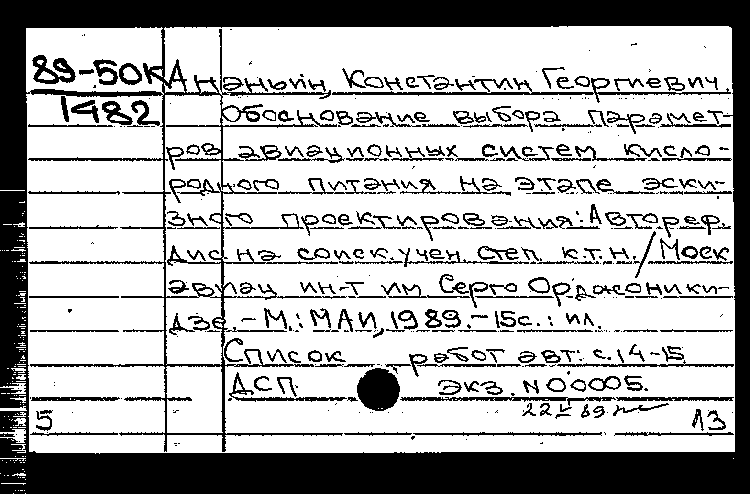 89-50К Ананьин, Константин Георгиевич.
1482 Обоснование выбора парамет-
ров авиационных систем кисло-
родного питания на этапе эски-
зного проектирования: Автореф.
дис на соиск. учен степ к.т.н. / Моск
авиац ин-т им Серго Орджоники-
дзе. - М.: МАИ, 1989. - 15с.: ил.
Список работ авт: с. 14-15
ДСП экз. N00005.
22 V 89
5 А3